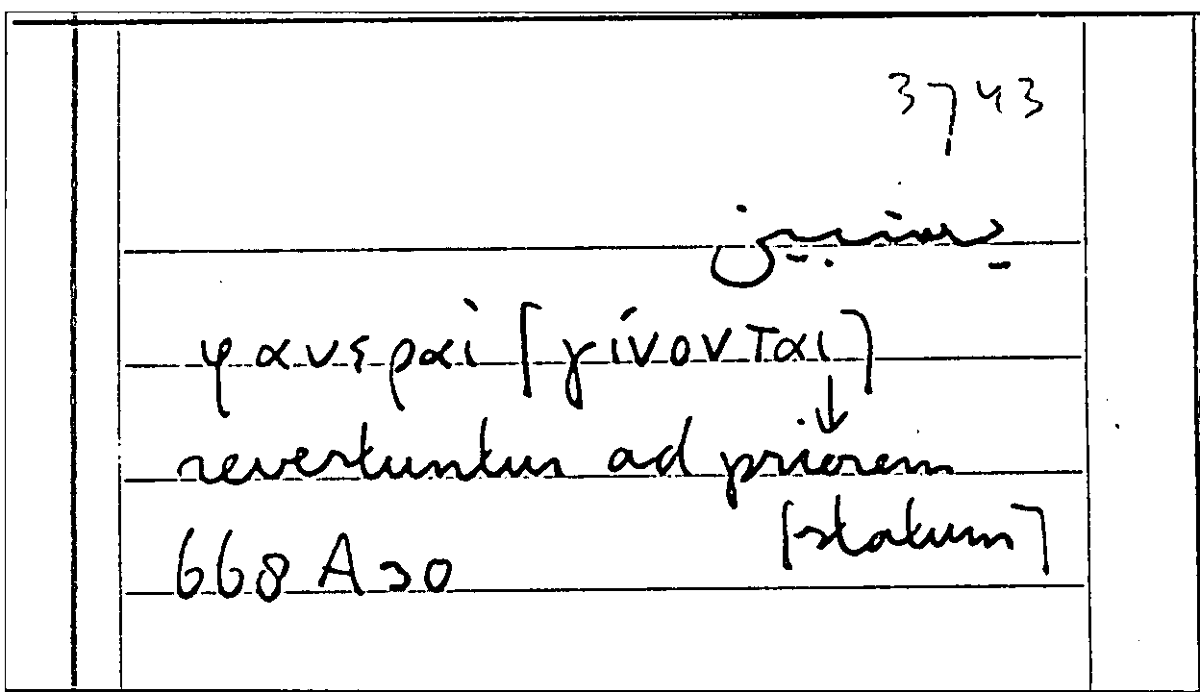 3743
يستبين
φανεραί [γίνονται]
revertuntur ad priorem
[statum]
668 A 30